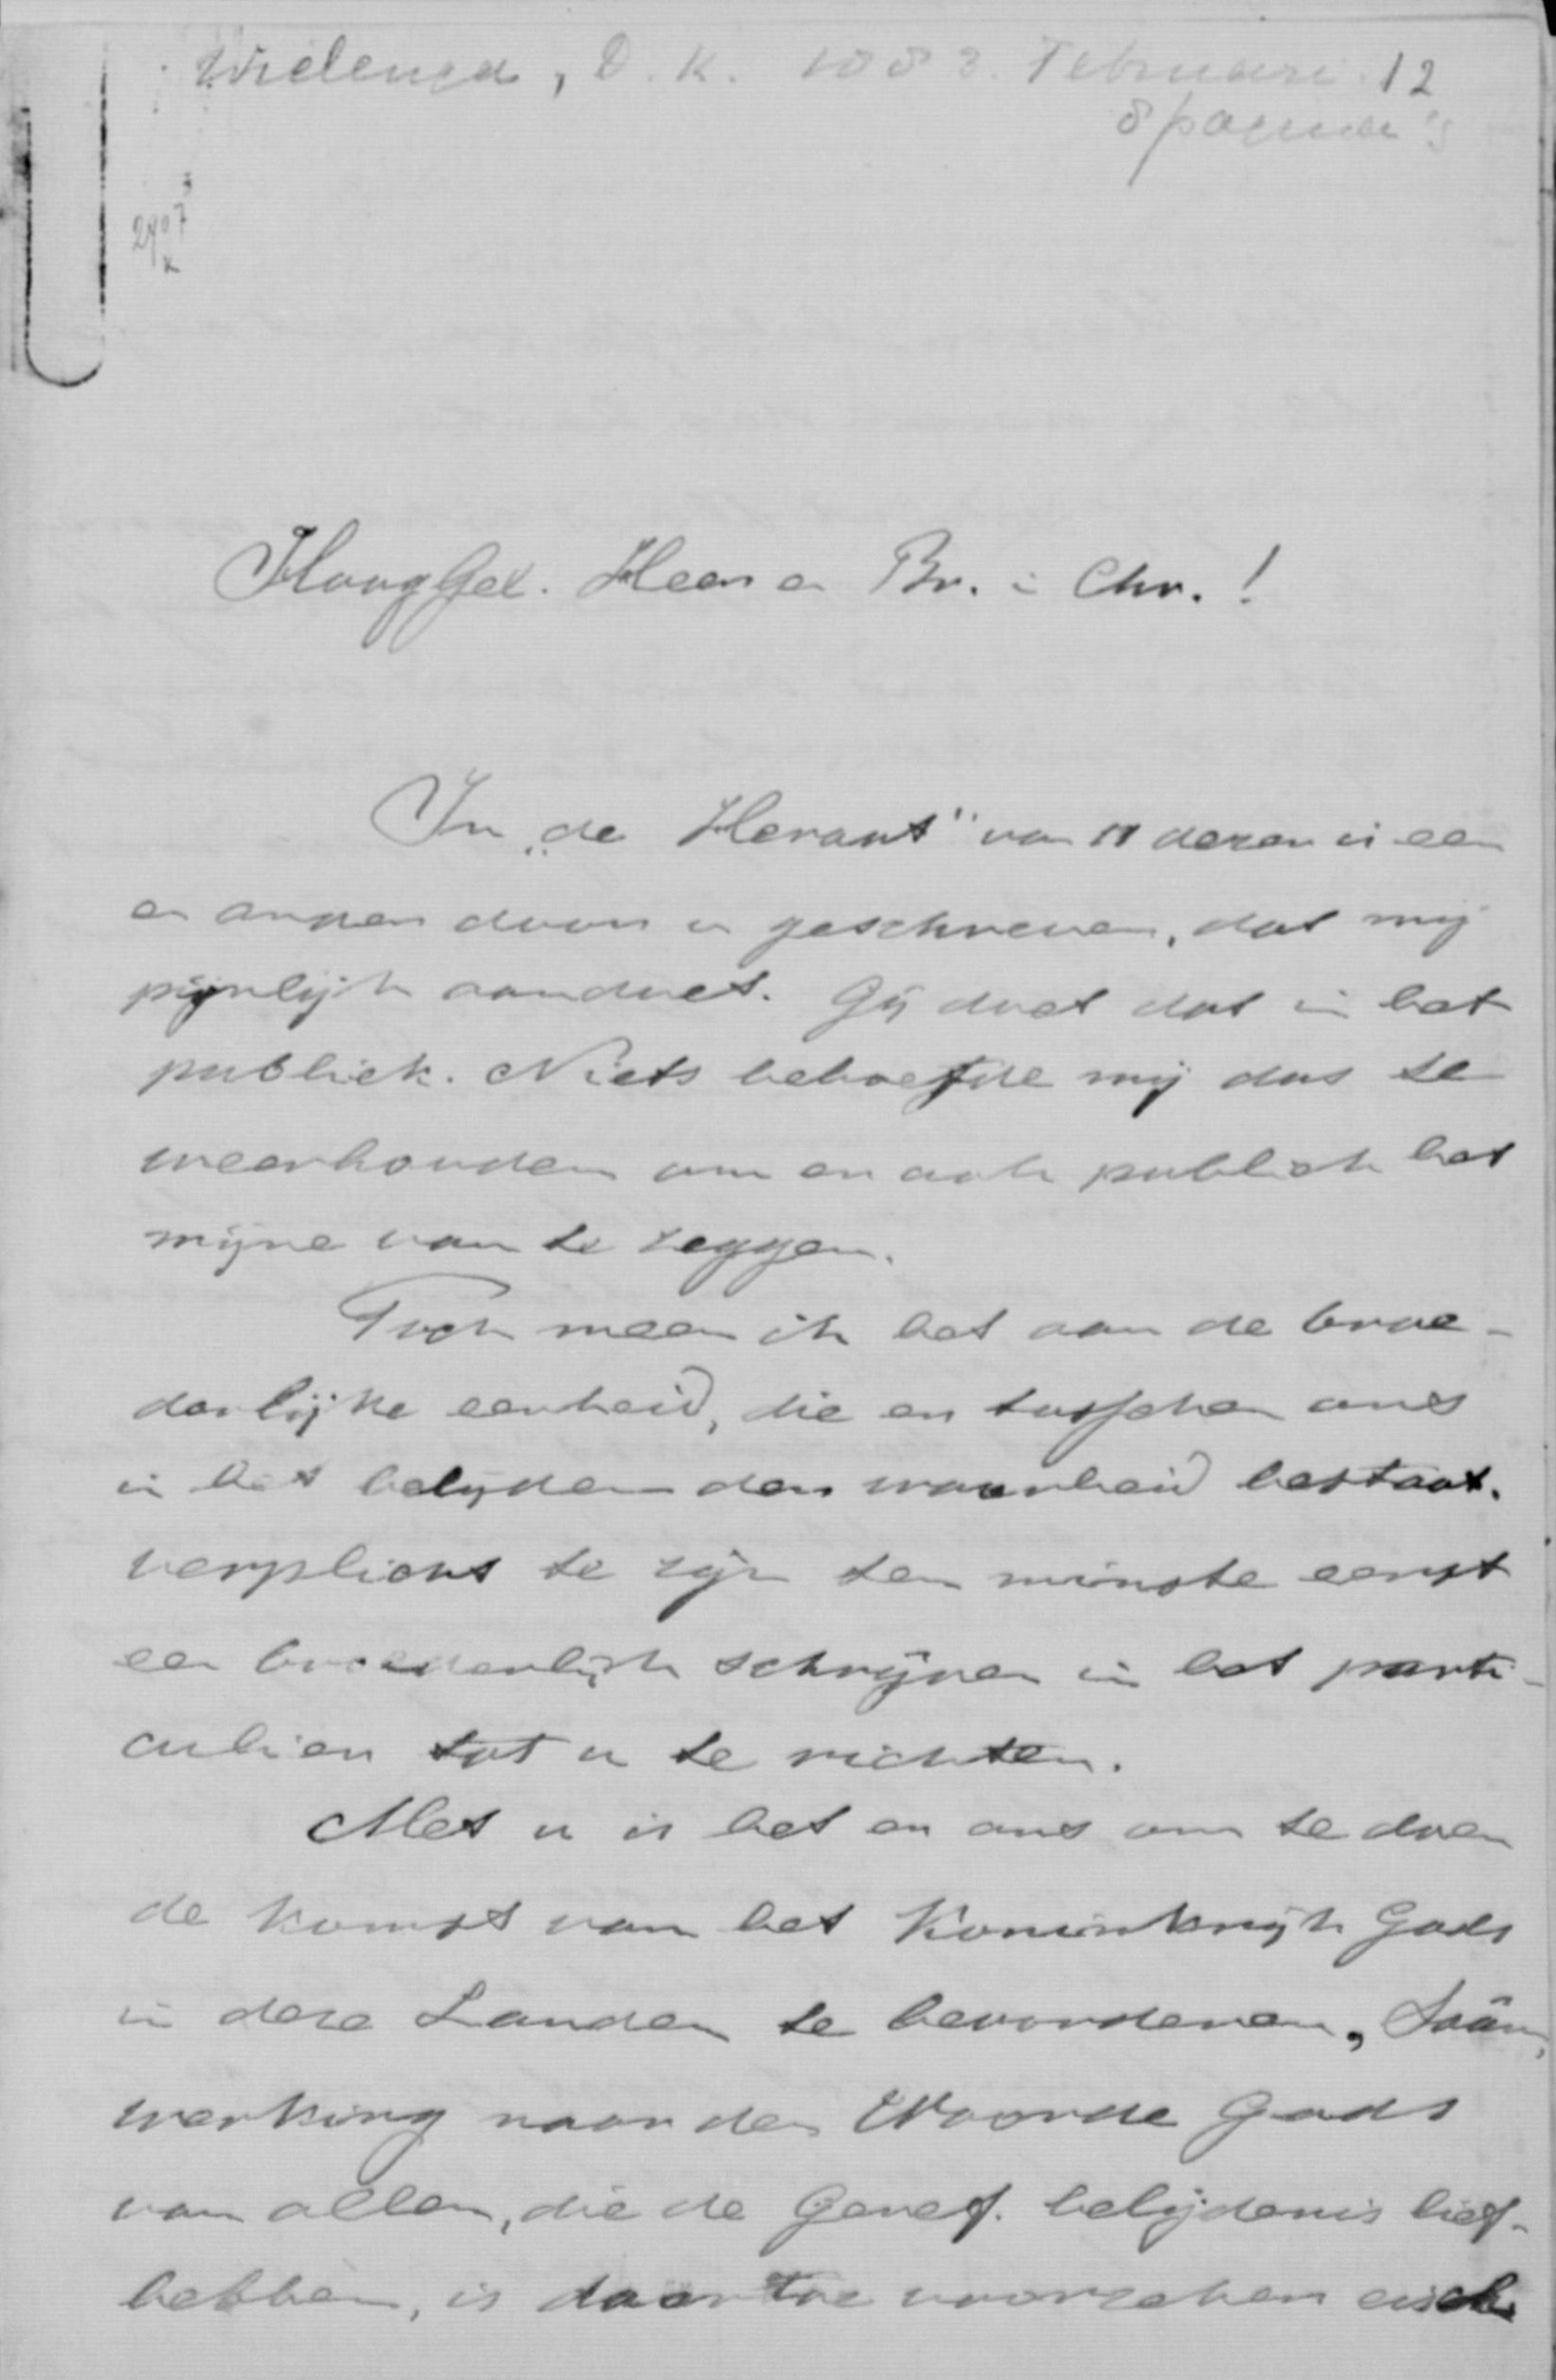 Wielenga, D. K. 1883. Februari 12
8 pagina's
HoogGel. Heer en Br. in Chr.!
In „de Heraut" van 11 dezer is een
en ander door u geschreven, dat mij
pijnlijk aandoet. Gij doet dat in het
publiek. Niets behoefde mij dus te
weerhouden om er ook publiek het
mijne van te zeggen.
Toch meen ik het aan de broe-
derlijke eenheid, die er tusschen ons
in het belijden der waarheid bestaat.
verplicht te zijn ten minste eerst
een broederlijk schrijven in het parti-
culier tot u te richten.
Met u is het er ons om te doen
de komst van het Koninkrijk Gods
in deze Landen te bevorderen, Saâm,
werking naar den Woorde Gods
van allen, die de Geref. belijdenis lief-
hebben, is daartoe eisch